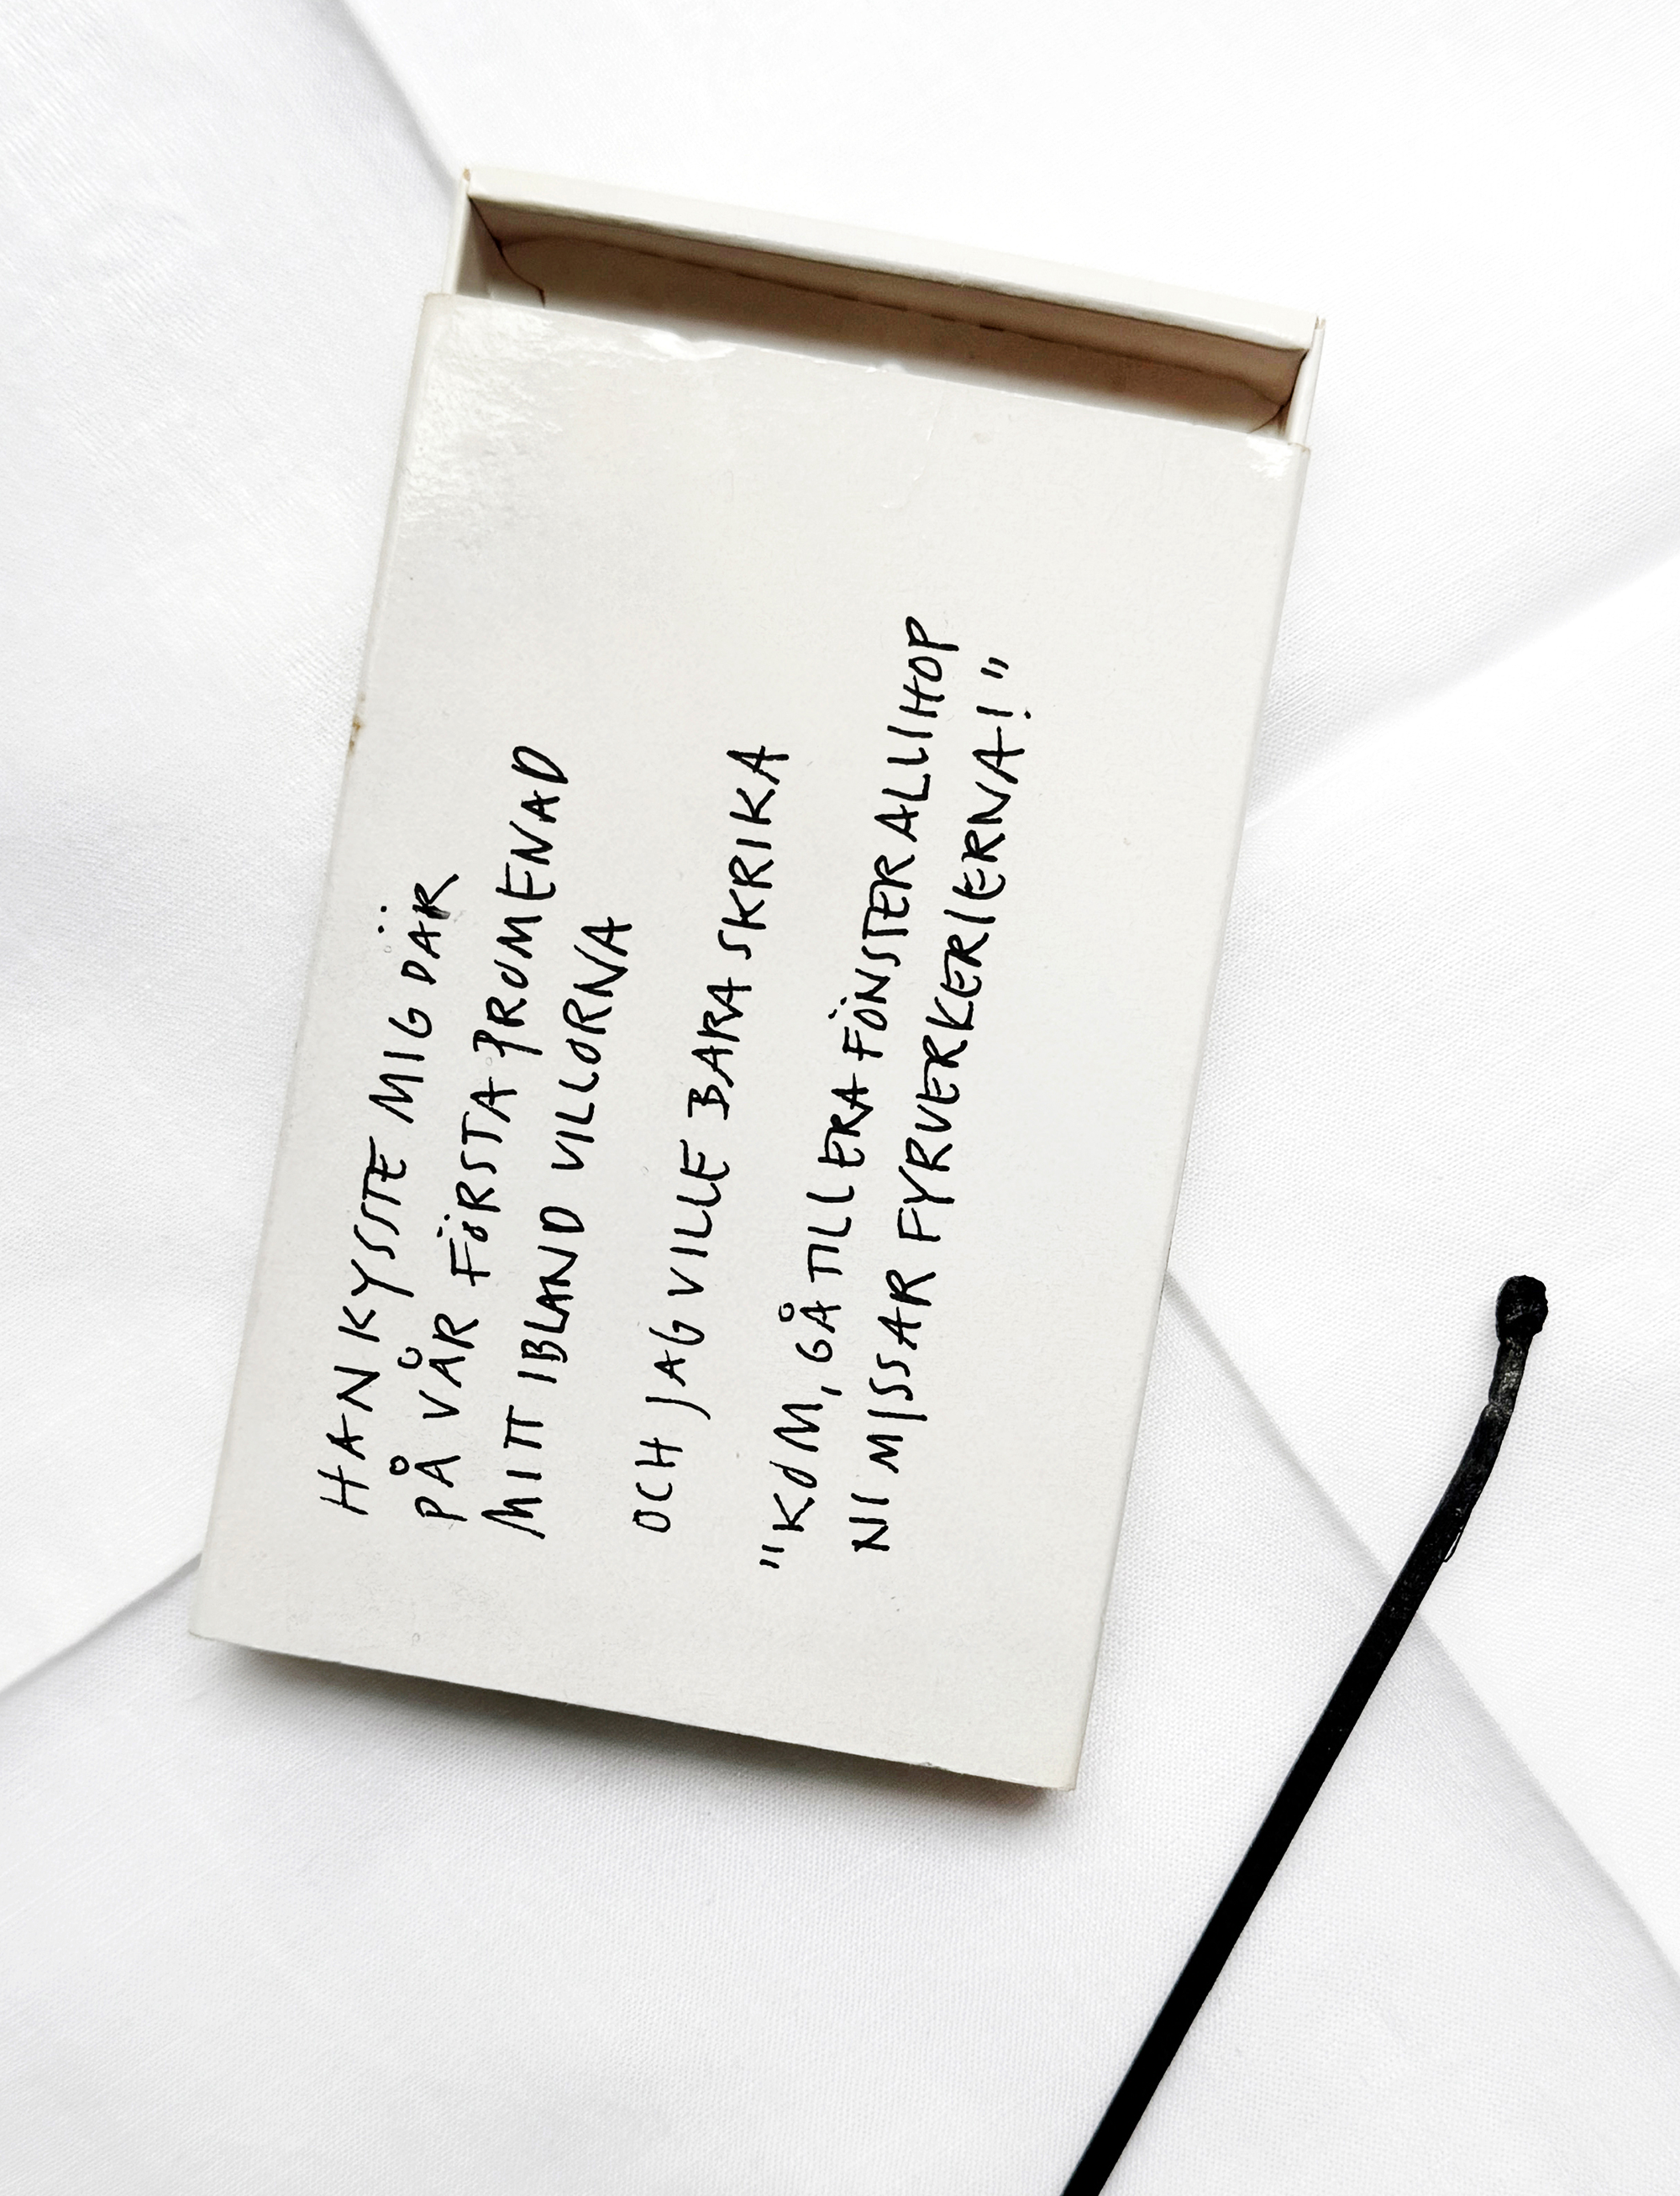 HAN KYSSTE MIG DÄR
PÅ VÅR FÖRSTA PROMENAD
MITT IBLAND VILLORNA
OCH JAG VILLE BARA SKRIKA
"KOM, GÅ TILL ERA FÖNSTER ALLIHOP
NI MISSAR FYRVERKERIERNA!"